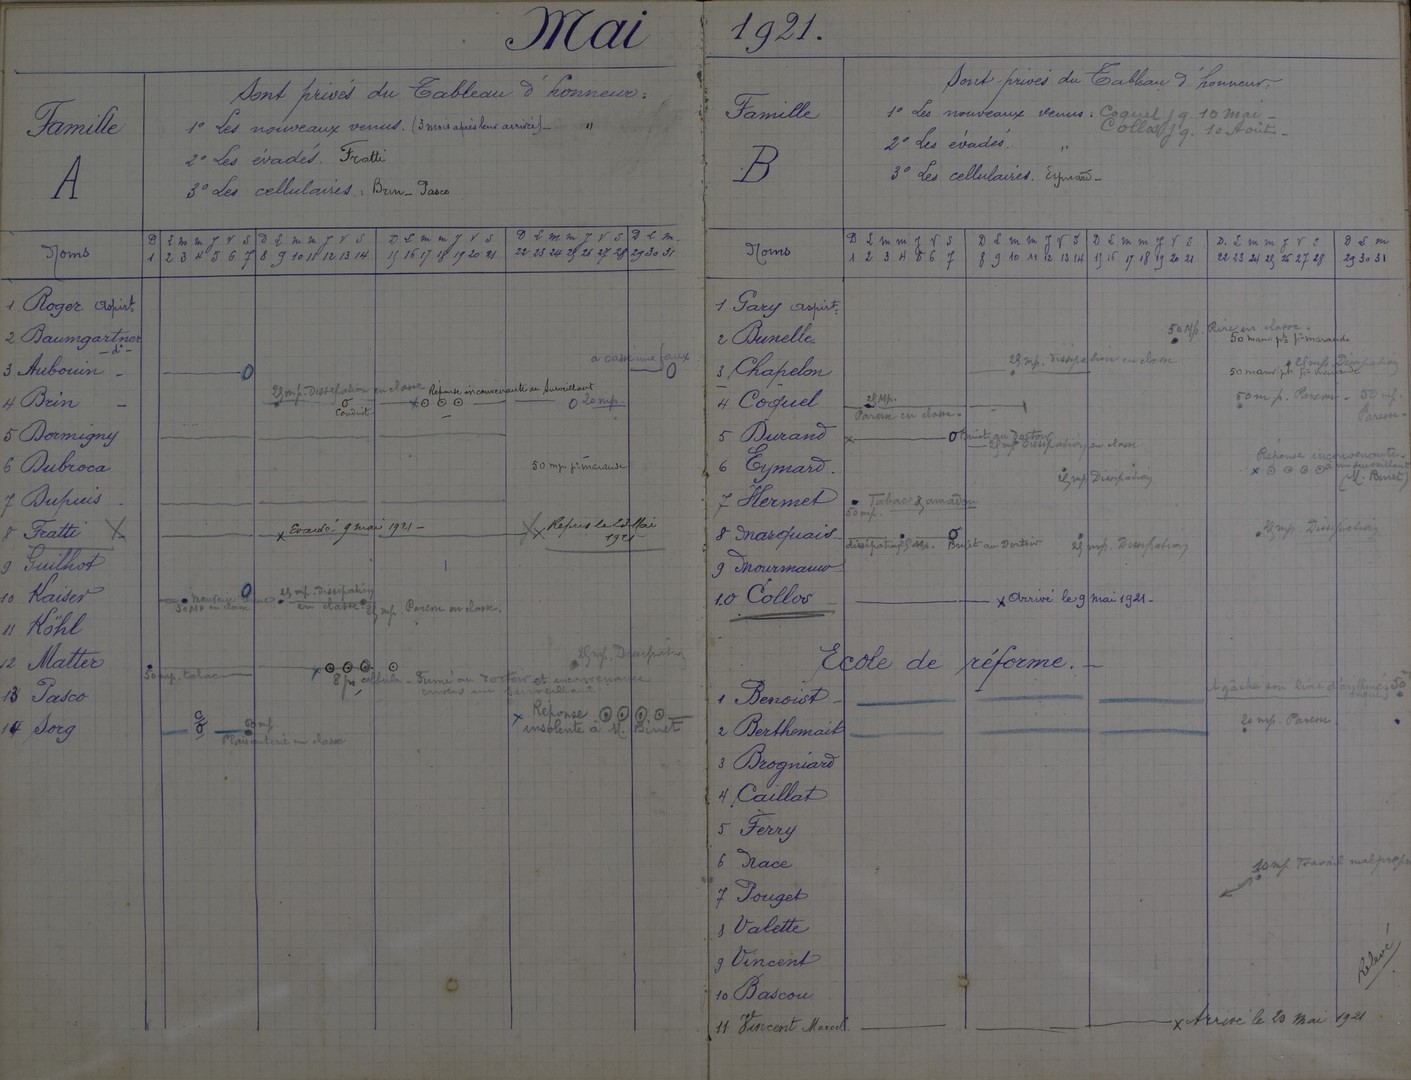 Mai
Famille
A
Sont privés du Tableau d'honneur:
1° Les nouveaux venus. (3 mois après leur arrivée) — "
2° Les évadés. Fratti
3° Les cellulaires: Brin — Pasco
Noms
D L m m J V S D L m m J V S D L m m J V S D L m m J V S D L m
1 2 3 4 5 6 7 8 9 10 11 12 13 14 15 16 17 18 19 20 21 22 23 24 25 26 27 28 29 30 31
1 Roger aspirt.
2 Baumgartner
— d° —
3 Aubouin
a cassé une faux
4 Brin
25 mp. Dissipation en classe
Conduit
Réponse inconvenante au Surveillant
20 mp.
5 Dormigny
6 Dubroca
50 mp pr maraude
7 Dupuis
8 Fratti
Evadé 9 mai 1921 —
Repris le 23 Mai
1921
9 Guilhot
10 Kaiser
50 mp en classe
25 mp. Dissipation
en classe
25 mp. Paresse en classe.
11 Köhl
12 Matter
50 mp. tabac
8 jrs cellule — Fumé au Dortoir et inconvenance
envers un surveillant
25 mp. Dissipation
13 Pasco
14 Sorg
50 mp.
Plaisanterie en classe
Réponse
insolente à M. Binet
1921.
Famille
B
Sont privés du Tableau d'honneur.
1° Les nouveaux venus: Coquel jq. 10 mai —
Collos jq. 10 Août —
2° Les évadés. "
3° Les cellulaires. Eymard —
Noms
D L m m J V S D L m m J V S D L m m J V S D L m m J V S D L m
1 2 3 4 5 6 7 8 9 10 11 12 13 14 15 16 17 18 19 20 21 22 23 24 25 26 27 28 29 30 31
1 Gary aspirt.
2 Bunelle
50 Mp. Rire en classe.
50 mauv. pts pr maraude
3 Chapelon
25 mp. dissipation en classe
25 mp. Dissipation
50 mauv. pts pr maraude
4 Coquel
25 mp.
Paresse en classe.
50 mp. Paresse — 50 mp.
Paresse —
5 Durand
Bruit au Dortoir
25 mp Dissipation en classe
6 Eymard
25 mp Dissipation
Réponse inconvenante
à un surveillant
(M. Binet)
7 Hermet
Tabac & amadou
50 mp.
8 Marquais
dissipation 25 mp. Bruit au Dortoir
25 mp. Dissipation
25 mp. Dissipation
9 Mourmaux
10 Collos
Arrivé le 9 mai 1921 —
Ecole de réforme. —
1 Benoist
50
2 Berthemait
20 mp. Paresse
3 Brogniard
4 Caillat
5 Ferry
6 Nace
10 mp Travail malpropre
7 Pouget
8 Valette
9 Vincent
10 Bascou
Relevé
11 Vincent Marcel
Arrivé le 20 mai 1921